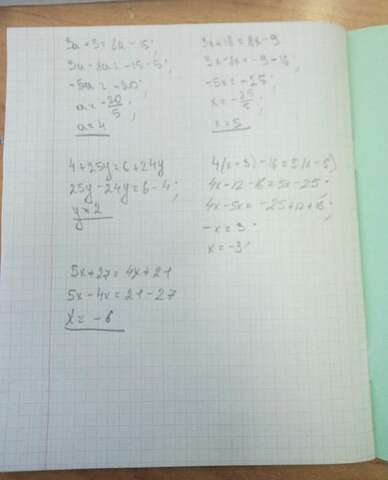 3a + 5 = 8a - 15;
3a - 8a = -15 - 5;
-5a = -20;
a = -20/5;
a = 4
3x + 16 = 8x - 9
3x - 8x = -9 - 16;
-5x = -25;
x = -25/5;
x = 5
4 + 25y = 6 + 24y
25y - 24y = 6 - 4;
y = 2
4(x - 3) - 16 = 5(x - 5)
4x - 12 - 16 = 5x - 25;
4x - 5x = -25 + 12 + 16;
-x = 3;
x = -3
5x + 27 = 4x + 21
5x - 4x = 21 - 27
x = -6